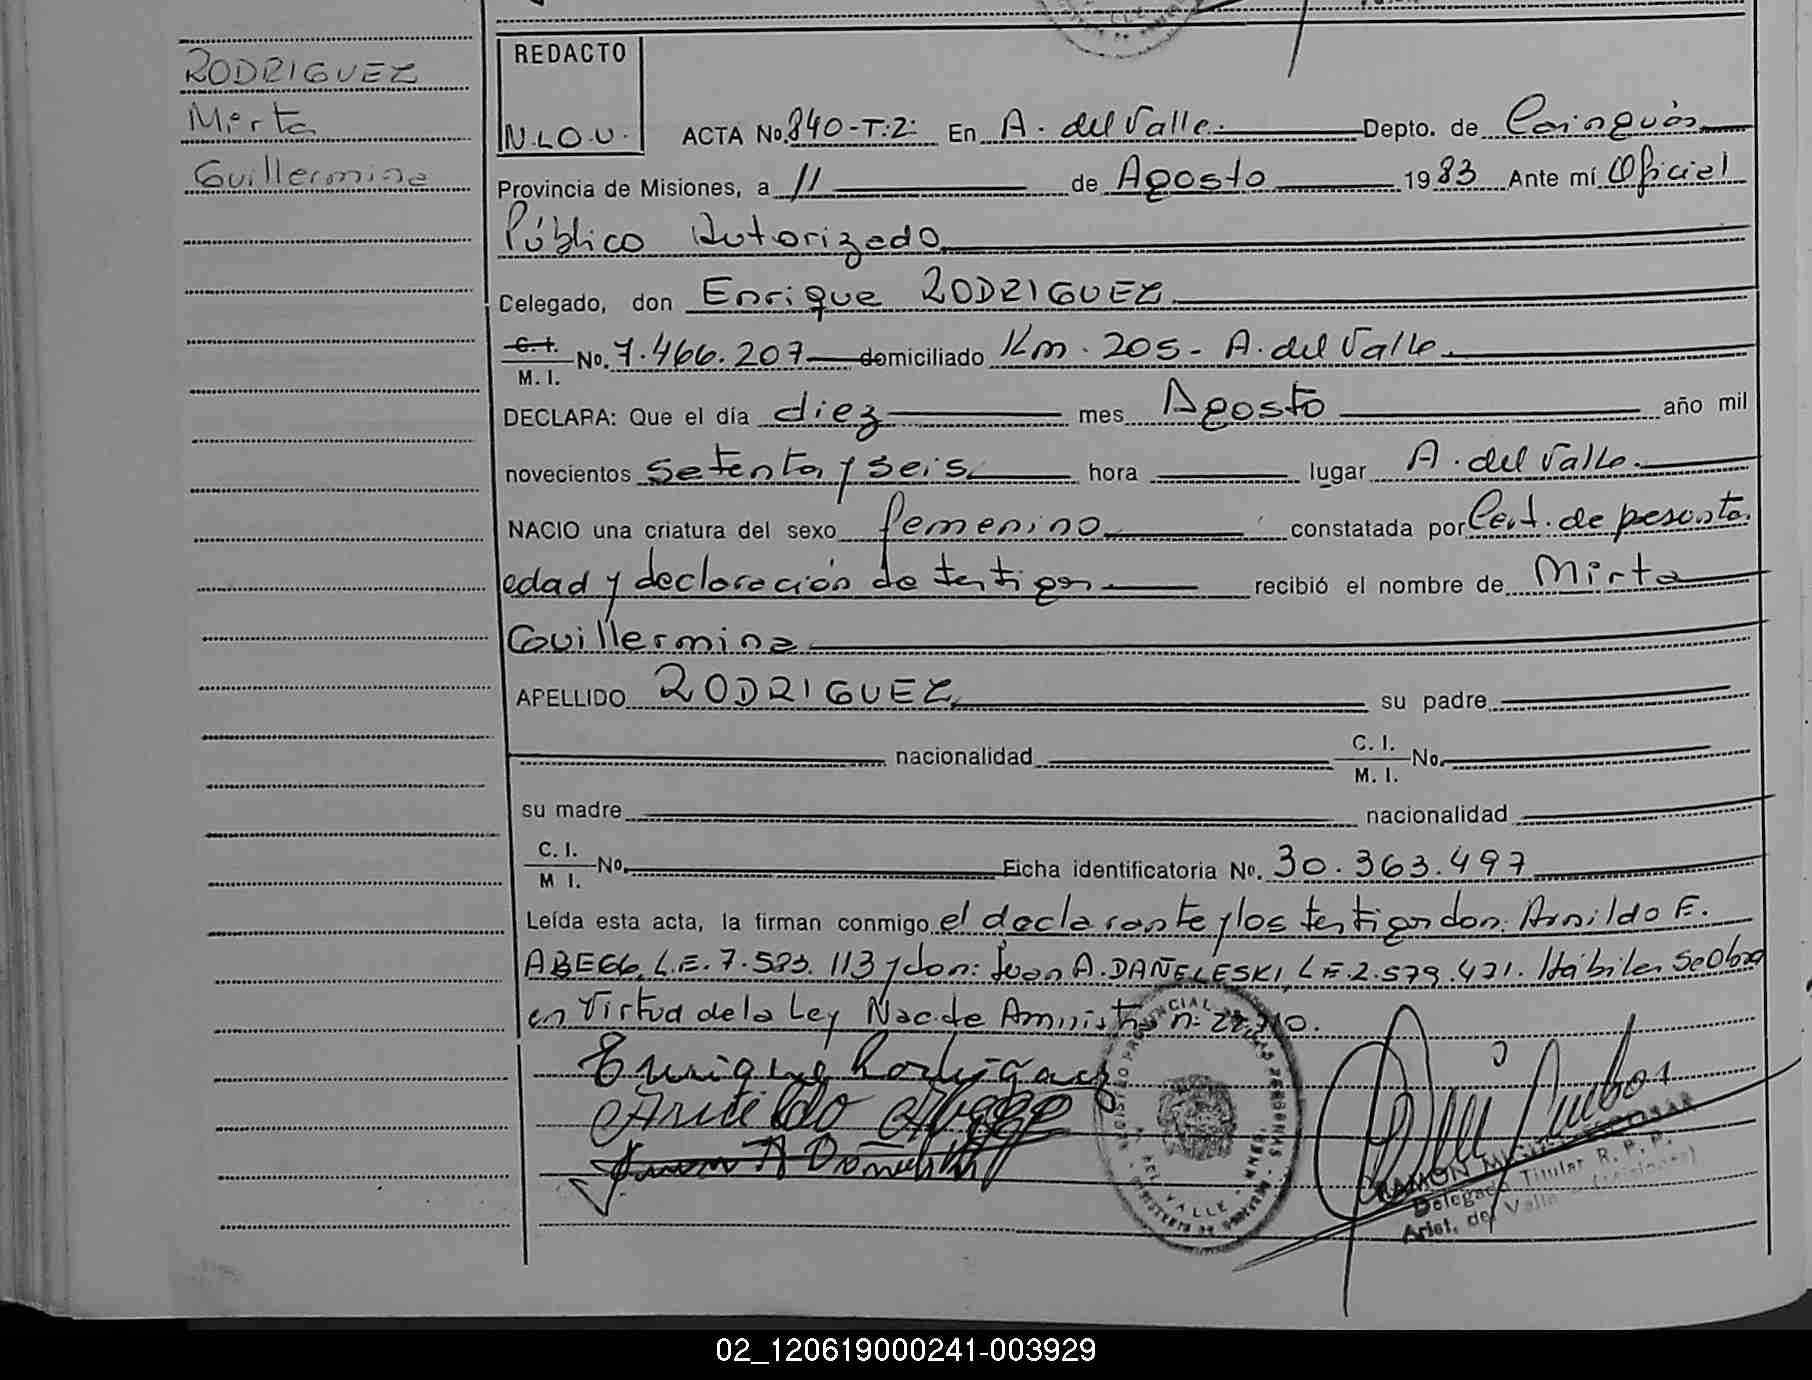 RODRIGUEZ
Mirta
Guillermina
REDACTO
N.L.O.U.
ACTA No. 840-T:2: En A. del Valle. Depto. de Cainguás
Provincia de Misiones, a 11 de Agosto 1983 Ante mí Oficial
Público Autorizado
Celegado, don Enrique RODRIGUEZ
C. I. / M. I. No. 7.466.207 domiciliado Km. 205 - A. del Valle.
DECLARA: Que el día diez mes Agosto año mil
novecientos setenta y seis hora lugar A. del Valle.
NACIO una criatura del sexo femenino constatada por Cert. de pesunta
edad y declaración de testigos recibió el nombre de Mirta
Guillermina
APELLIDO RODRIGUEZ su padre
nacionalidad C. I. / M. I. No.
su madre nacionalidad
C. I. / M I. No. Ficha identificatoria No. 30.363.497
Leída esta acta, la firman conmigo el declarante y los testigos don: Arnildo E.
ABEGG, L.E. 7.583.113 y don: Juan A. DAÑELESKI, L.E. 2.579.471. Hábiles Se Obra
en Virtud de la Ley Nac. de Aministía n: 22.710.
Enrique Rodriguez
Arnildo Abegg
Juan A Dañeleski
REGISTRO PROVINCIAL DE LAS PERSONAS
DEL VALLE
RAMON
Delegado Titular R. P. P.
Arist. del Valle (Misiones)
02_120619000241-003929